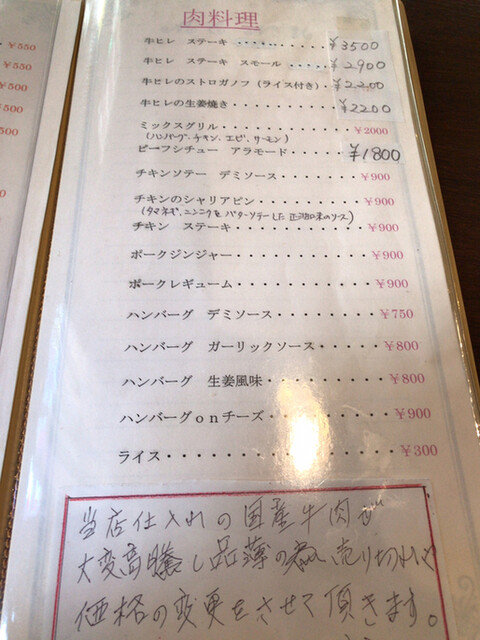 肉料理
牛ヒレ ステーキ・・・・・・・・・・・・¥3500
牛ヒレ ステーキ スモール・・・・・¥2900
牛ヒレのストロガノフ（ライス付き）・¥2200
牛ヒレの生姜焼き・・・・・・・・・・・¥2200
ミックスグリル・・・・・・・・・・・・¥2000
（ハンバーグ、チキン、エビ、サーモン）
ビーフシチュー アラモード・・・・・¥1800
チキンソテー デミソース・・・・・・・¥900
チキンのシャリアピン・・・・・・・・・¥900
（タマネギ、ニンニクをバターソテーした正油味のソース）
チキン ステーキ・・・・・・・・・・・¥900
ポークジンジャー・・・・・・・・・・・¥900
ポークレギューム・・・・・・・・・・・¥900
ハンバーグ デミソース・・・・・・・・¥750
ハンバーグ ガーリックソース・・・・・¥800
ハンバーグ 生姜風味・・・・・・・・・¥800
ハンバーグonチーズ・・・・・・・・・¥900
ライス・・・・・・・・・・・・・・・・¥300
当店仕入れの国産牛肉が
大変高騰し品薄の為、売り切れや
価格の変更をさせて頂きます。
¥550
¥550
¥500
¥500
¥500